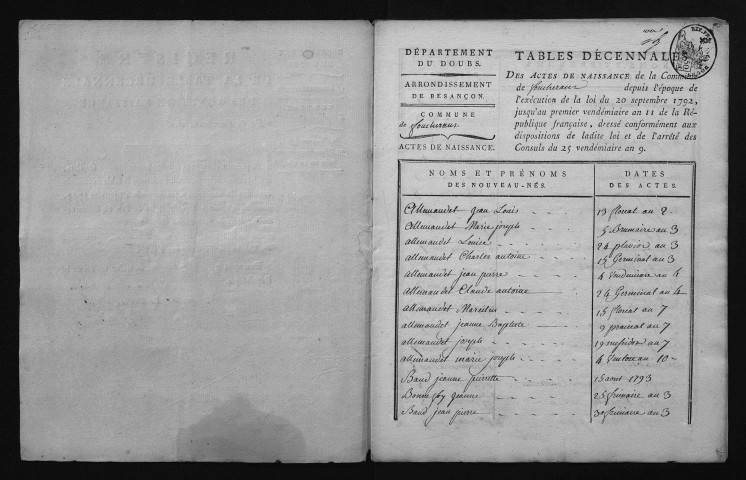 DÉPARTEMENT
DU DOUBS.
ARRONDISSEMENT
DE BESANÇON.
COMMUNE
de foucherans
ACTES DE NAISSANCE.
TABLES DÉCENNALES
DES ACTES DE NAISSANCE de la Commune
de foucherans depuis l'époque de
l'exécution de la loi du 20 septembre 1792,
jusqu'au premier vendémiaire an 11 de la Ré-
publique française, dressé conformément aux
dispositions de ladite loi et de l'arrêté des
Consuls du 25 vendémiaire an 9.
NOMS ET PRÉNOMS
DES NOUVEAU-NÉS.
DATES
DES ACTES.
Allemandet Jean Louis 13 floreal an 2
Allemandet Marie josephe 5 Brumaire an 3
allemandet Louise 24 pluviose an 3
allemandet Charles antoine 15 Germinal an 3
allemandet jean pierre 4 Vendemiaire an 4
allemandet Claude antoine 24 Germinal an 4
allemandet 15 floreal an 7
allemandet jeanne Baptiste 9 prairial an 7
allemandet josephe 19 messidor an 7
allemandet marie josephe 4 Ventose an 10
Baud jeanne pierrette 15 aout 1793
Bonnefoy jeanne 25 frimaire an 3
Baud jean pierre 30 frimaire an 3